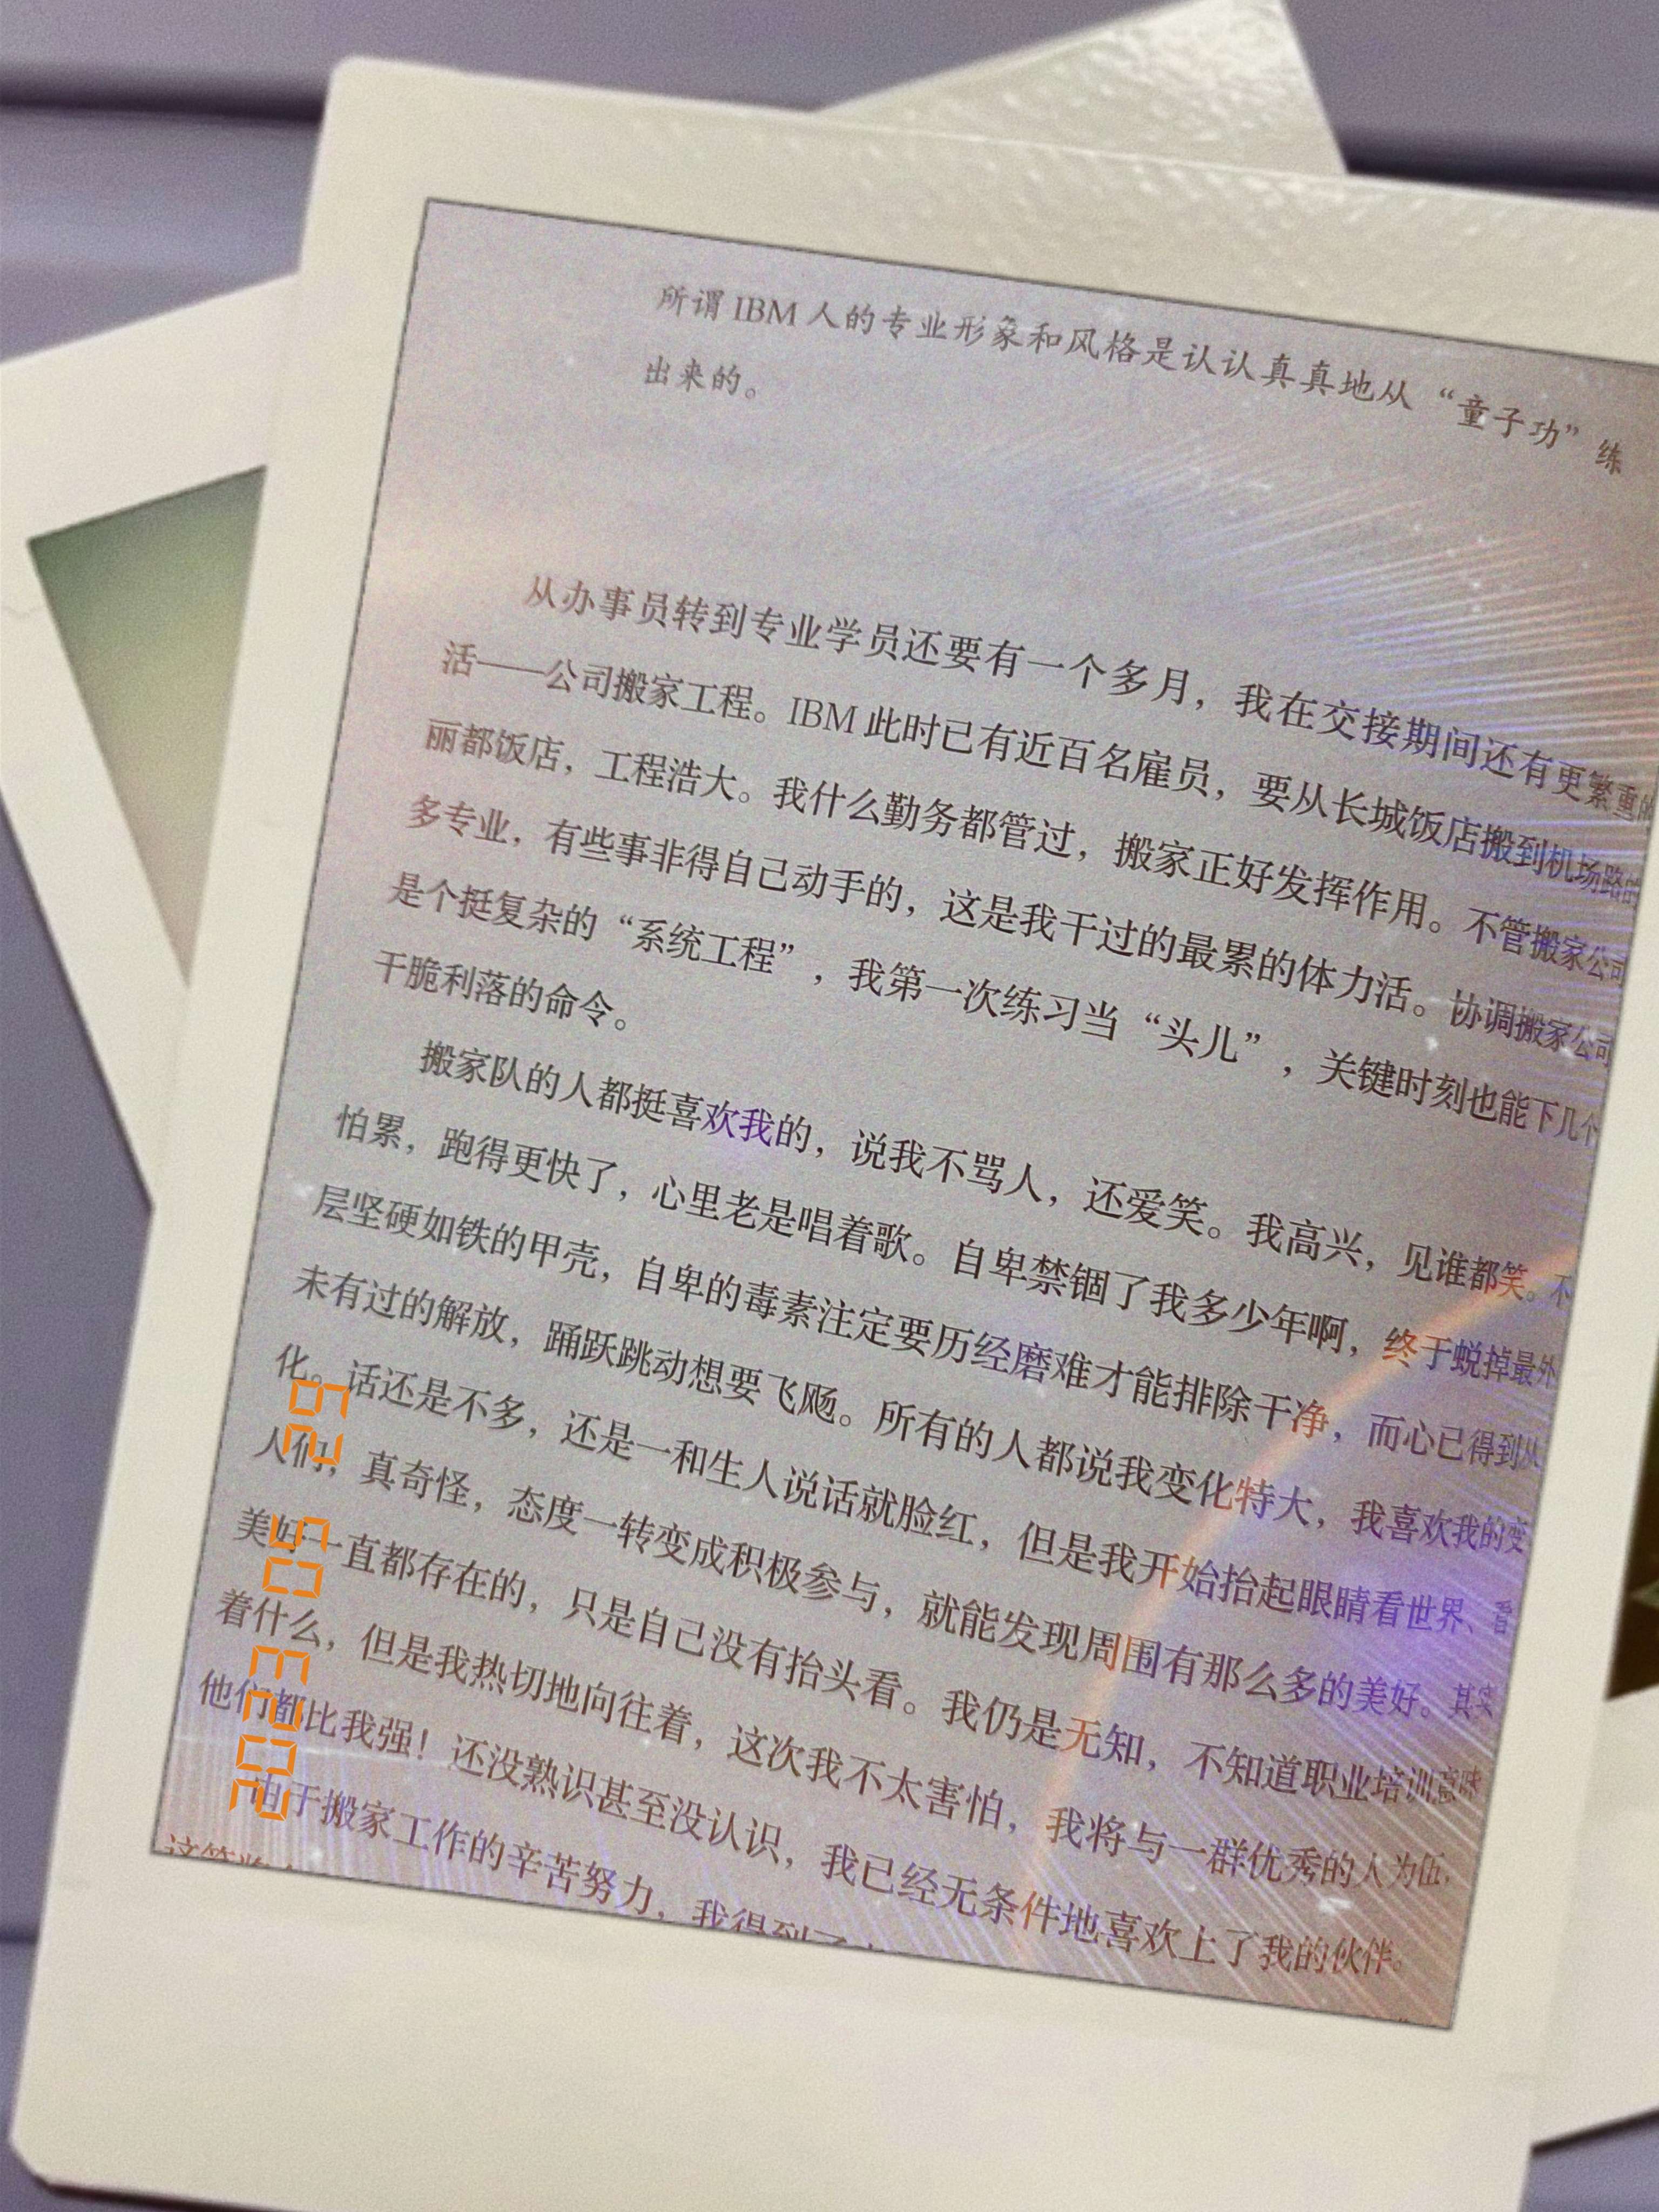 所谓 IBM 人的专业形象和风格是认认真真地从“童子功”练
出来的。
从办事员转到专业学员还要有一个多月，我在交接期间还有更繁重的
活——公司搬家工程。IBM 此时已有近百名雇员，要从长城饭店搬到机场路
丽都饭店，工程浩大。我什么勤务都管过，搬家正好发挥作用。不管搬家公司
多专业，有些事非得自己动手的，这是我干过的最累的体力活。协调搬家公司
是个挺复杂的“系统工程”，我第一次练习当“头儿”，关键时刻也能下几个
干脆利落的命令。
搬家队的人都挺喜欢我的，说我不骂人，还爱笑。我高兴，见谁都笑。不
怕累，跑得更快了，心里老是唱着歌。自卑禁锢了我多少年啊，终于蜕掉最外
层坚硬如铁的甲壳，自卑的毒素注定要历经磨难才能排除干净，而心已得到从
未有过的解放，踊跃跳动想要飞飏。所有的人都说我变化特大，我喜欢我的变
化。话还是不多，还是一和生人说话就脸红，但是我开始抬起眼睛看世界、看
人们，真奇怪，态度一转变成积极参与，就能发现周围有那么多的美好。其实
美好一直都存在的，只是自己没有抬头看。我仍是无知，不知道职业培训意味
着什么，但是我热切地向往着，这次我不太害怕，我将与一群优秀的人为伍，
他们都比我强！还没熟识甚至没认识，我已经无条件地喜欢上了我的伙伴。
由于搬家工作的辛苦努力，我得到了